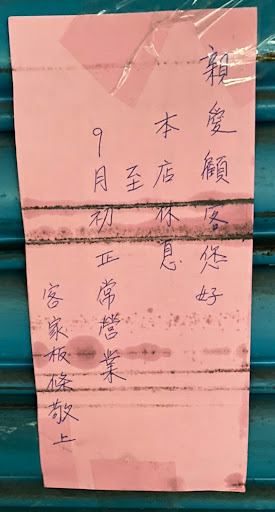 親愛顧客您好
本店休息
至
9月初正常營業
客家板條敬上